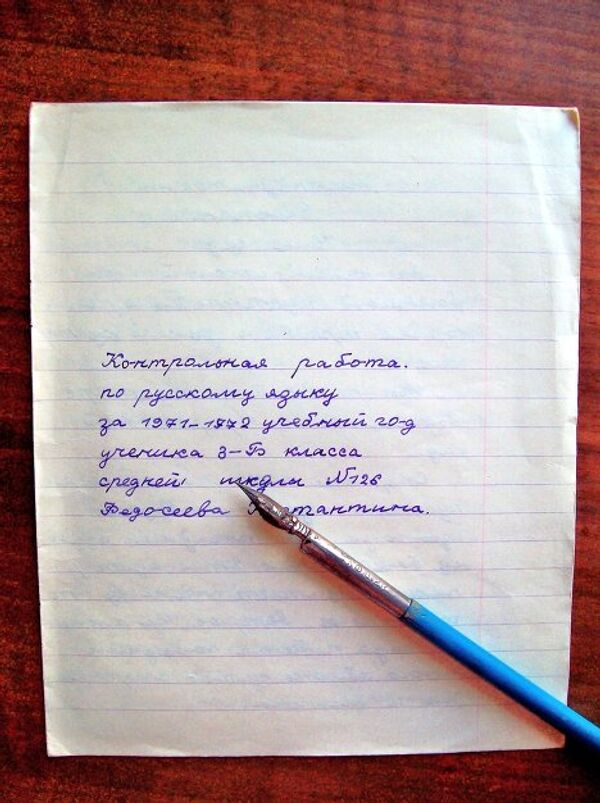 Контрольная работа.
по русскому языку
за 1971-1972 учебный год
ученика 3-Б класса
средней школы №126
Федосеева Константина.